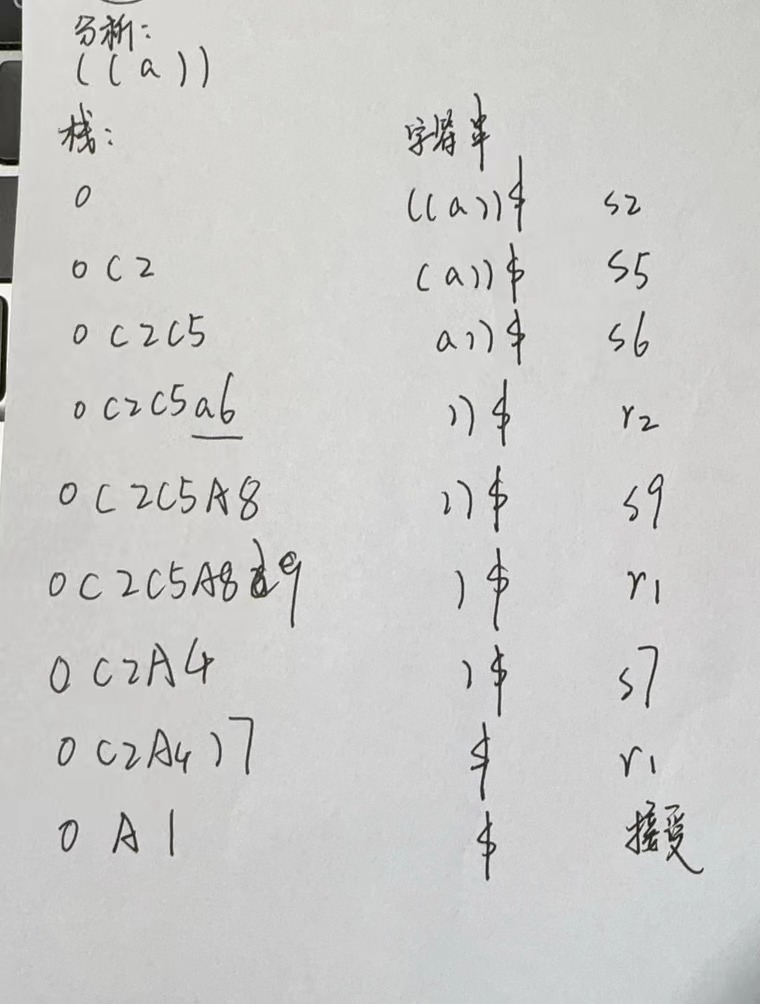 分析:
((a))
栈: 字符串
0 ((a))$ s2
0(2 (a))$ s5
0(2(5 a))$ s6
0(2(5a6 ))$ r2
0(2(5A8 ))$ s9
0(2(5A8)9 )$ r1
0(2A4 )$ s7
0(2A4)7 $ r1
0A1 $ 接受